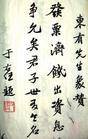 東有先生象贊
發粟濟饑出資息
爭允矣君子世名
于右任題